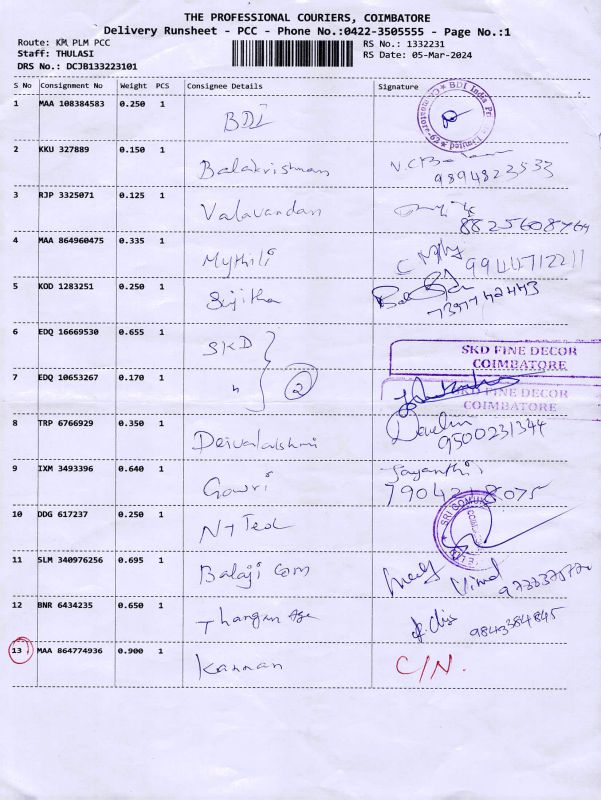 THE PROFESSIONAL COURIERS, COIMBATORE
Delivery Runsheet - PCC - Phone No.:0422-3505555 - Page No.:1
Route: KM PLM PCC
Staff: THULASI
DRS No.: DCJB133223101
RS No.: 1332231
RS Date: 05-Mar-2024
S No Consignment No Weight PCS Consignee Details Signature
1 MAA 108384583 0.250 1 BDI
2 KKU 327889 0.150 1 Balakrishnan 9894823533
3 RJP 3325071 0.125 1 Valavandan 8825608764
4 MAA 864960475 0.335 1 Mythili 9944712211
5 KOD 1283251 0.250 1 Sijitha 7397742443
6 EDQ 16669530 0.655 1 SKD SKD FINE DECOR
COIMBATORE
7 EDQ 10653267 0.170 1 " 2 SKD FINE DECOR
COIMBATORE
8 TRP 6766929 0.350 1 Deivalakshmi 9500231344
9 IXM 3493396 0.640 1 Gowri Jayanthi
7904218075
10 DDG 617237 0.250 1 N+ Ted
11 SLM 340976256 0.695 1 Balaji Com Vimal
12 BNR 6434235 0.650 1 Thangam Age 9843384845
13 MAA 864774936 0.900 1 Kannan C/N.